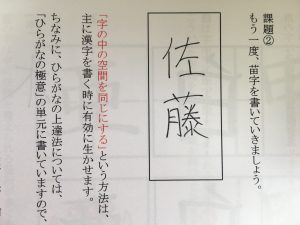 課題②
もう一度、苗字を書いていきましょう。
佐藤
「字の中の空間を同じにする」という方法は、
主に漢字を書く時に有効に生かせます。
ちなみに、ひらがなの上達法については、
「ひらがなの極意」の単元に書いていますので、